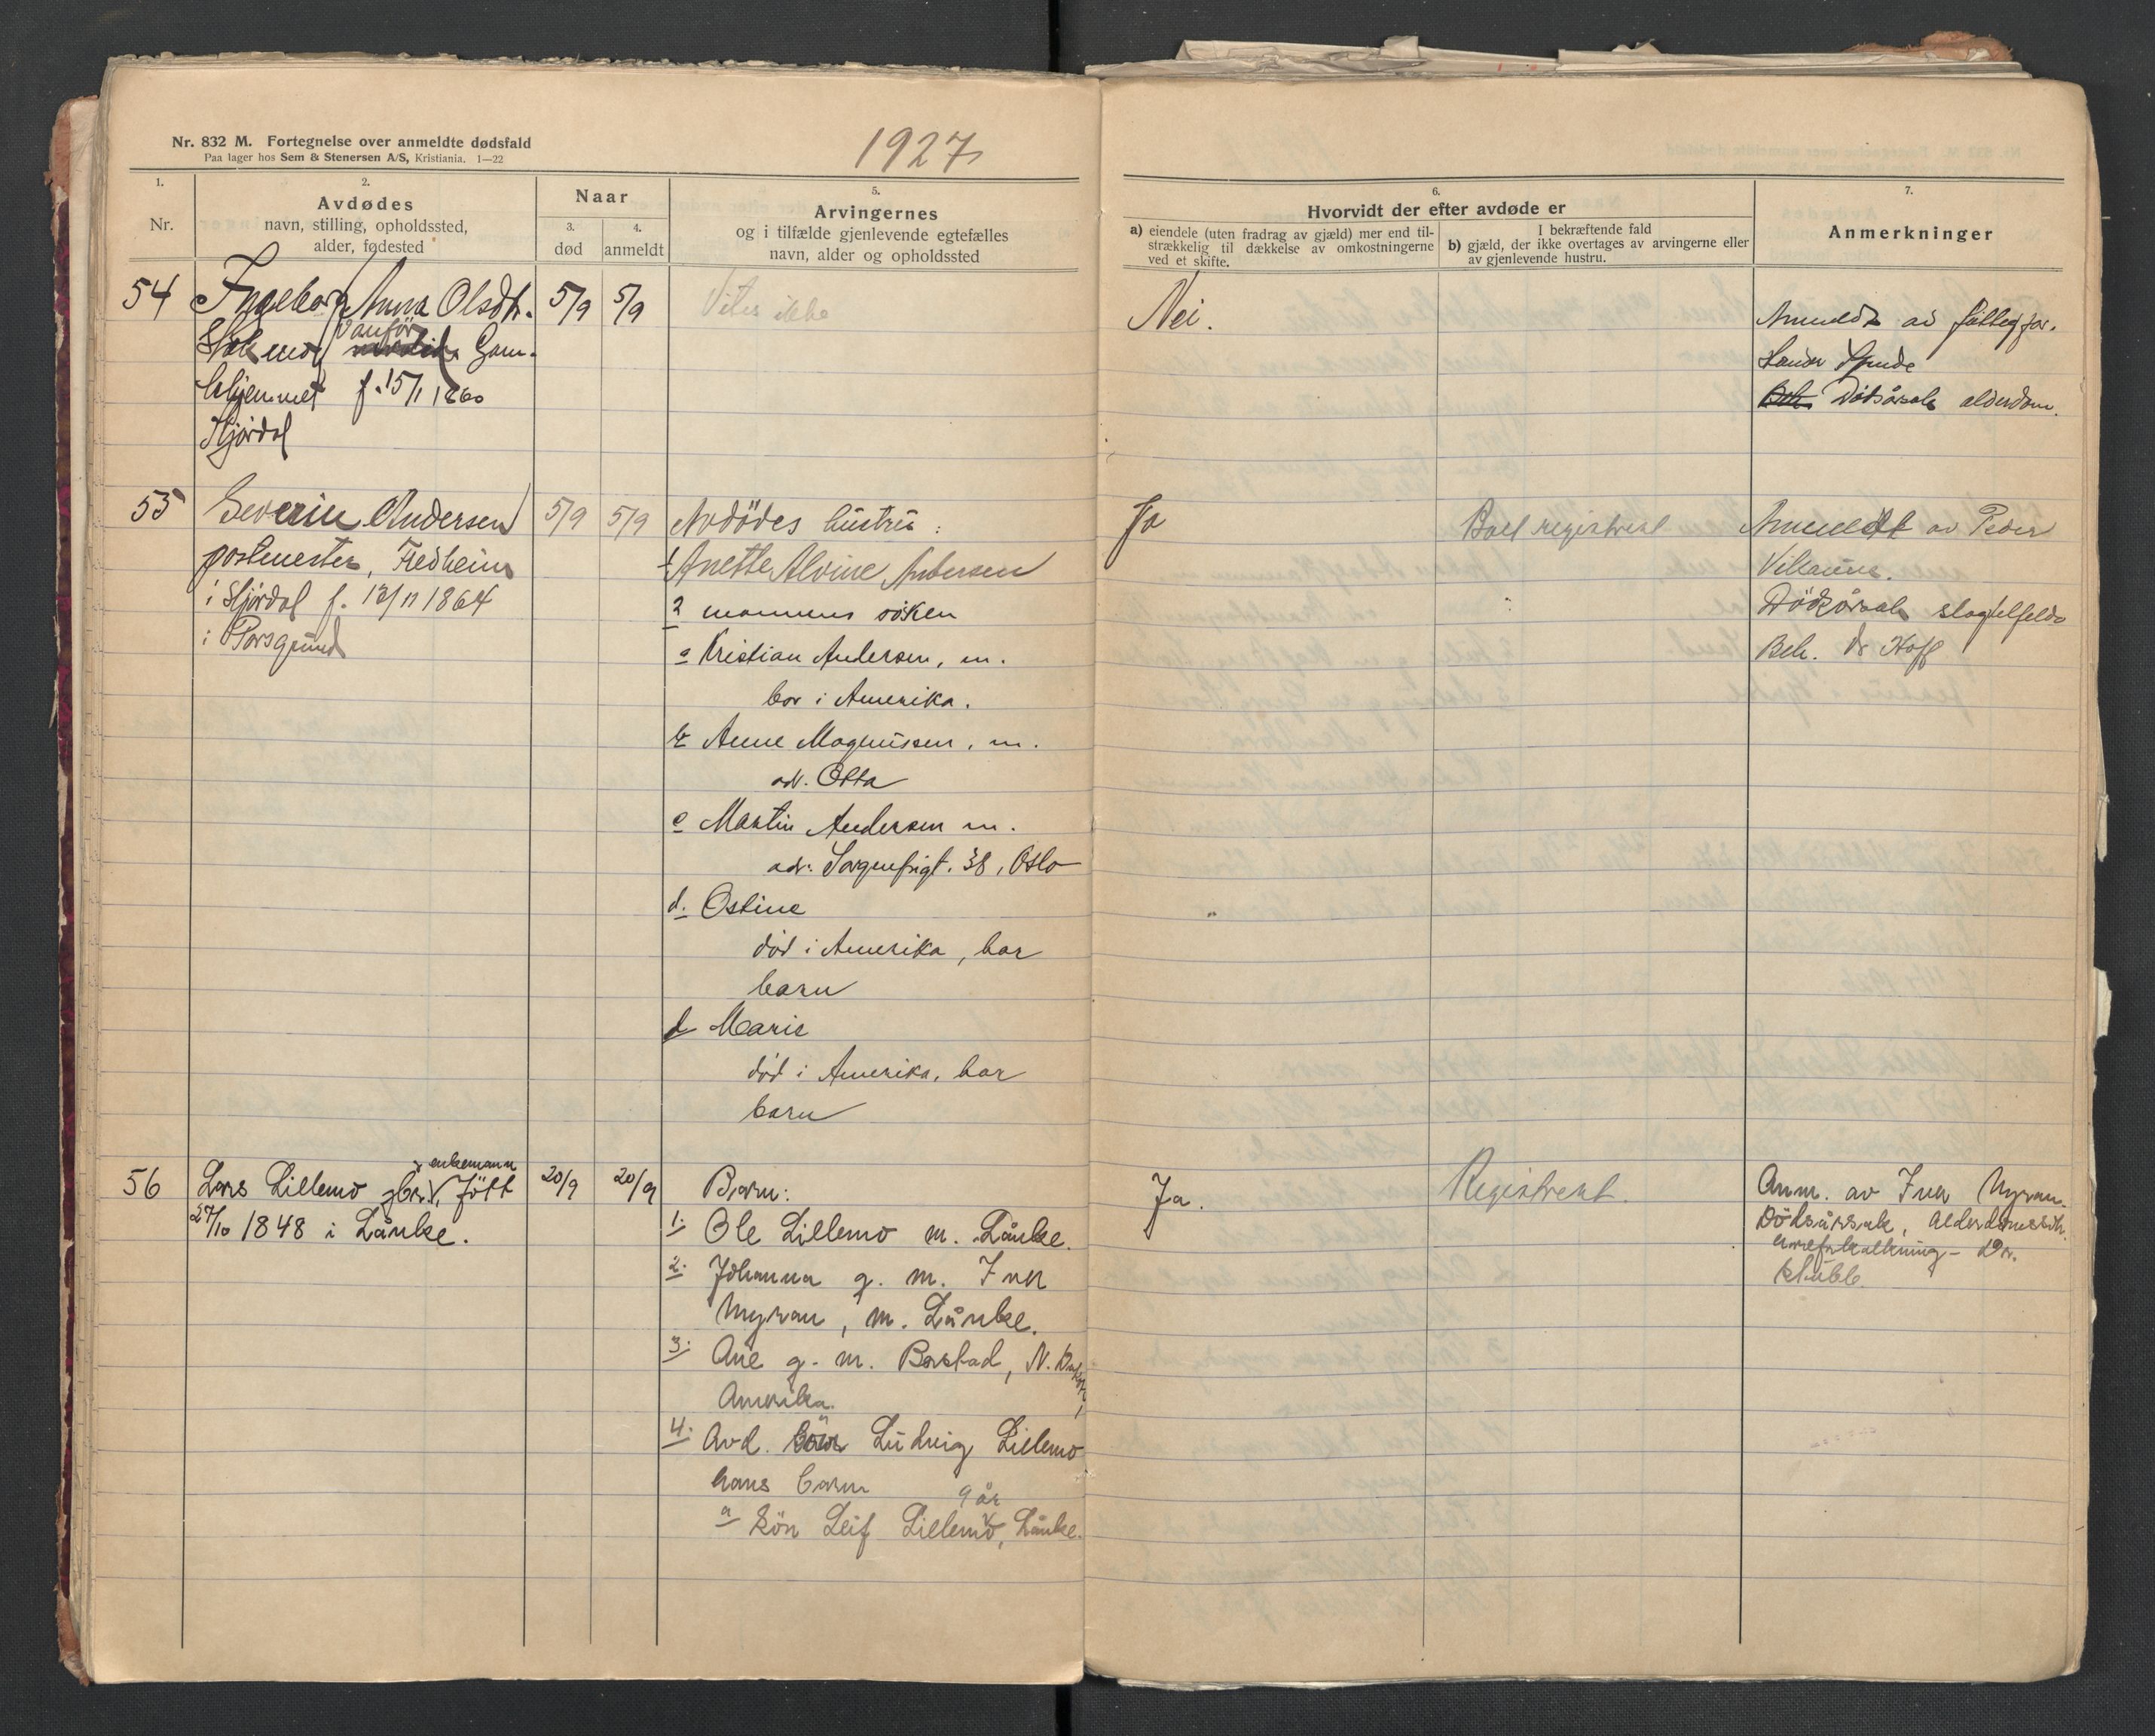 Nr. 832 M. Fortegnelse over anmeldte dødsfald
Paa lager hos Sem & Stenersen A/S, Kristiania. 1—22
1927
1.
Nr.
2.
Avdødes
navn, stilling, opholdssted,
alder, fødested
Naar
3.
død
4.
anmeldt
5.
Arvingernes
og i tilfælde gjenlevende egtefælles
navn, alder og opholdssted
6.
Hvorvidt der efter avdøde er
a) eiendele (uten fradrag av gjæld) mer end til-
strækkelig til dækkelse av omkostningerne
ved et skifte.
I bekræftende fald
b) gjæld, der ikke overtages av arvingerne eller
av gjenlevende hustru.
7.
Anmerkninger
54
Ingeborg Anna Olsdtr.
vanför
Gam-
lehjemmet f. 15/1 1860
Stjørdal
5/9
5/9
Vites ikke
Nei.
Anmeldt av fattigfor.
Dødsårsak alderdom.
55
Severin Andersen
postmester, Fredheim
i Stjørdal f. 13/11 1864
i Porsgrund
5/9
5/9
Avdödes hustru:
1 Anette Alvine Andersen
2 mannens søsken
a Kristian Andersen, m.
bor i Amerika.
b Anne Magnussen, m.
adr. Otta
c Martin Andersen m.
adr. Sorgenfrigt. 38, Oslo
d. Ostine
død i Amerika, har
barn
d Marie
død i Amerika, har
barn
Ja
Boet registrert
Anmeldt av Peder
Villaune.
Dödsårsak slagtelfelde
Beh. dr Hoff
56
enkemann
Lars Lillemo gbr. född
27/10 1848 i Lånke.
20/9
20/9
Barn:
1. Ole Lillemo m. Lånke.
2. Johanna g. m. Iver
Myran, m. Lånke.
3. Ane g. m. Borstad, N. Dakota,
Amerika.
4. Avd. sön Ludvig Lillemo
hans barn
9 år
a sön Leif Lillemo, Lånke.
Ja.
Registrert.
Anm. av Iver Myran.
Dödsårsak, Alderdomssvk.
åreforkalkning - Dr.